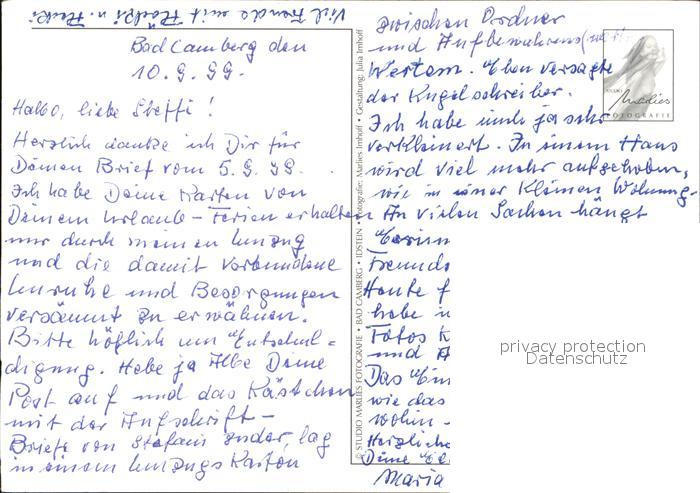 Viel Freude mit
Bad Camberg den
10.9.99.
Hallo, liebe Steffi!
Herzlich danke ich Dir für
Deinen Brief vom 5.9.99.
Ich habe Deine Karten von
Deinem Urlaub - Ferien erhalten
nur durch meinen Umzug
und die damit verbundene
Unruhe und Besorgungen
versäumt zu erwähnen.
Bitte höflich um Entschul=
digung. Hebe ja Alle Deine
Post auf und das Kästchen
mit der Aufschrift -
Briefe von Stefani Zuder, lag
in einem Umzugs Karton
zwischen Ordner
und
Wertem. Eben versagte
der Kugelschreiber.
Ich habe mich ja sehr
verkleinert. In einem Haus
wird viel mehr aufgehoben,
wie in einer kleinen Wohnung.
An vielen Sachen hängt
Erinn
Freunds
Heute f
habe i
Fotos k
und A
Das Ein
wie das
wohin -
Herzliche
Deine
Maria
© STUDIO MARLIES FOTOGRAFIE • BAD CAMBERG • IDSTEIN • Fotografie: Marlies Imhoff • Gestaltung: Julia Imhoff
STUDIO
Marlies
FOTOGRAFIE
privacy protection
Datenschutz